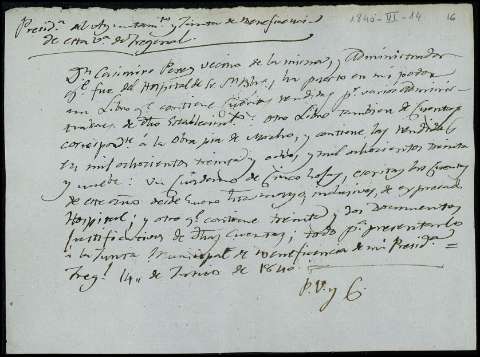 Presid.ª del Ayuntam.to y Junta de Beneficencia
de esta v.ª de Fregenal.
1840-VI-14
16
D.n Casimiro Perez vecino de la misma, y Administrador
q.e fue del Hospital de ha puesto en mi poder
un Libro q.e contiene Cuentas rendidas p.r varios Adminis-
tradores de dho Establecim.to: otro Libro tambien de Cuentas
correspond.te à la Obra pia de y contiene las rendidas
en mil ochocientos treinta y ocho, y mil ochocientos treinta
y nueve: un Cuaderno de Cinco hojas, escritas las Cuentas
de este año desde Enero hta mayo, inclusives, de expresado
Hospital; y otro q.e contiene treinta y dos Documentos
justificativos de dhas Cuentas; todo p.a presentarlo
à la Junta Municipal de Beneficencia de mi Presid.ª =
Freg.l 14,, de Junio de 1840. =
P. V. y G.